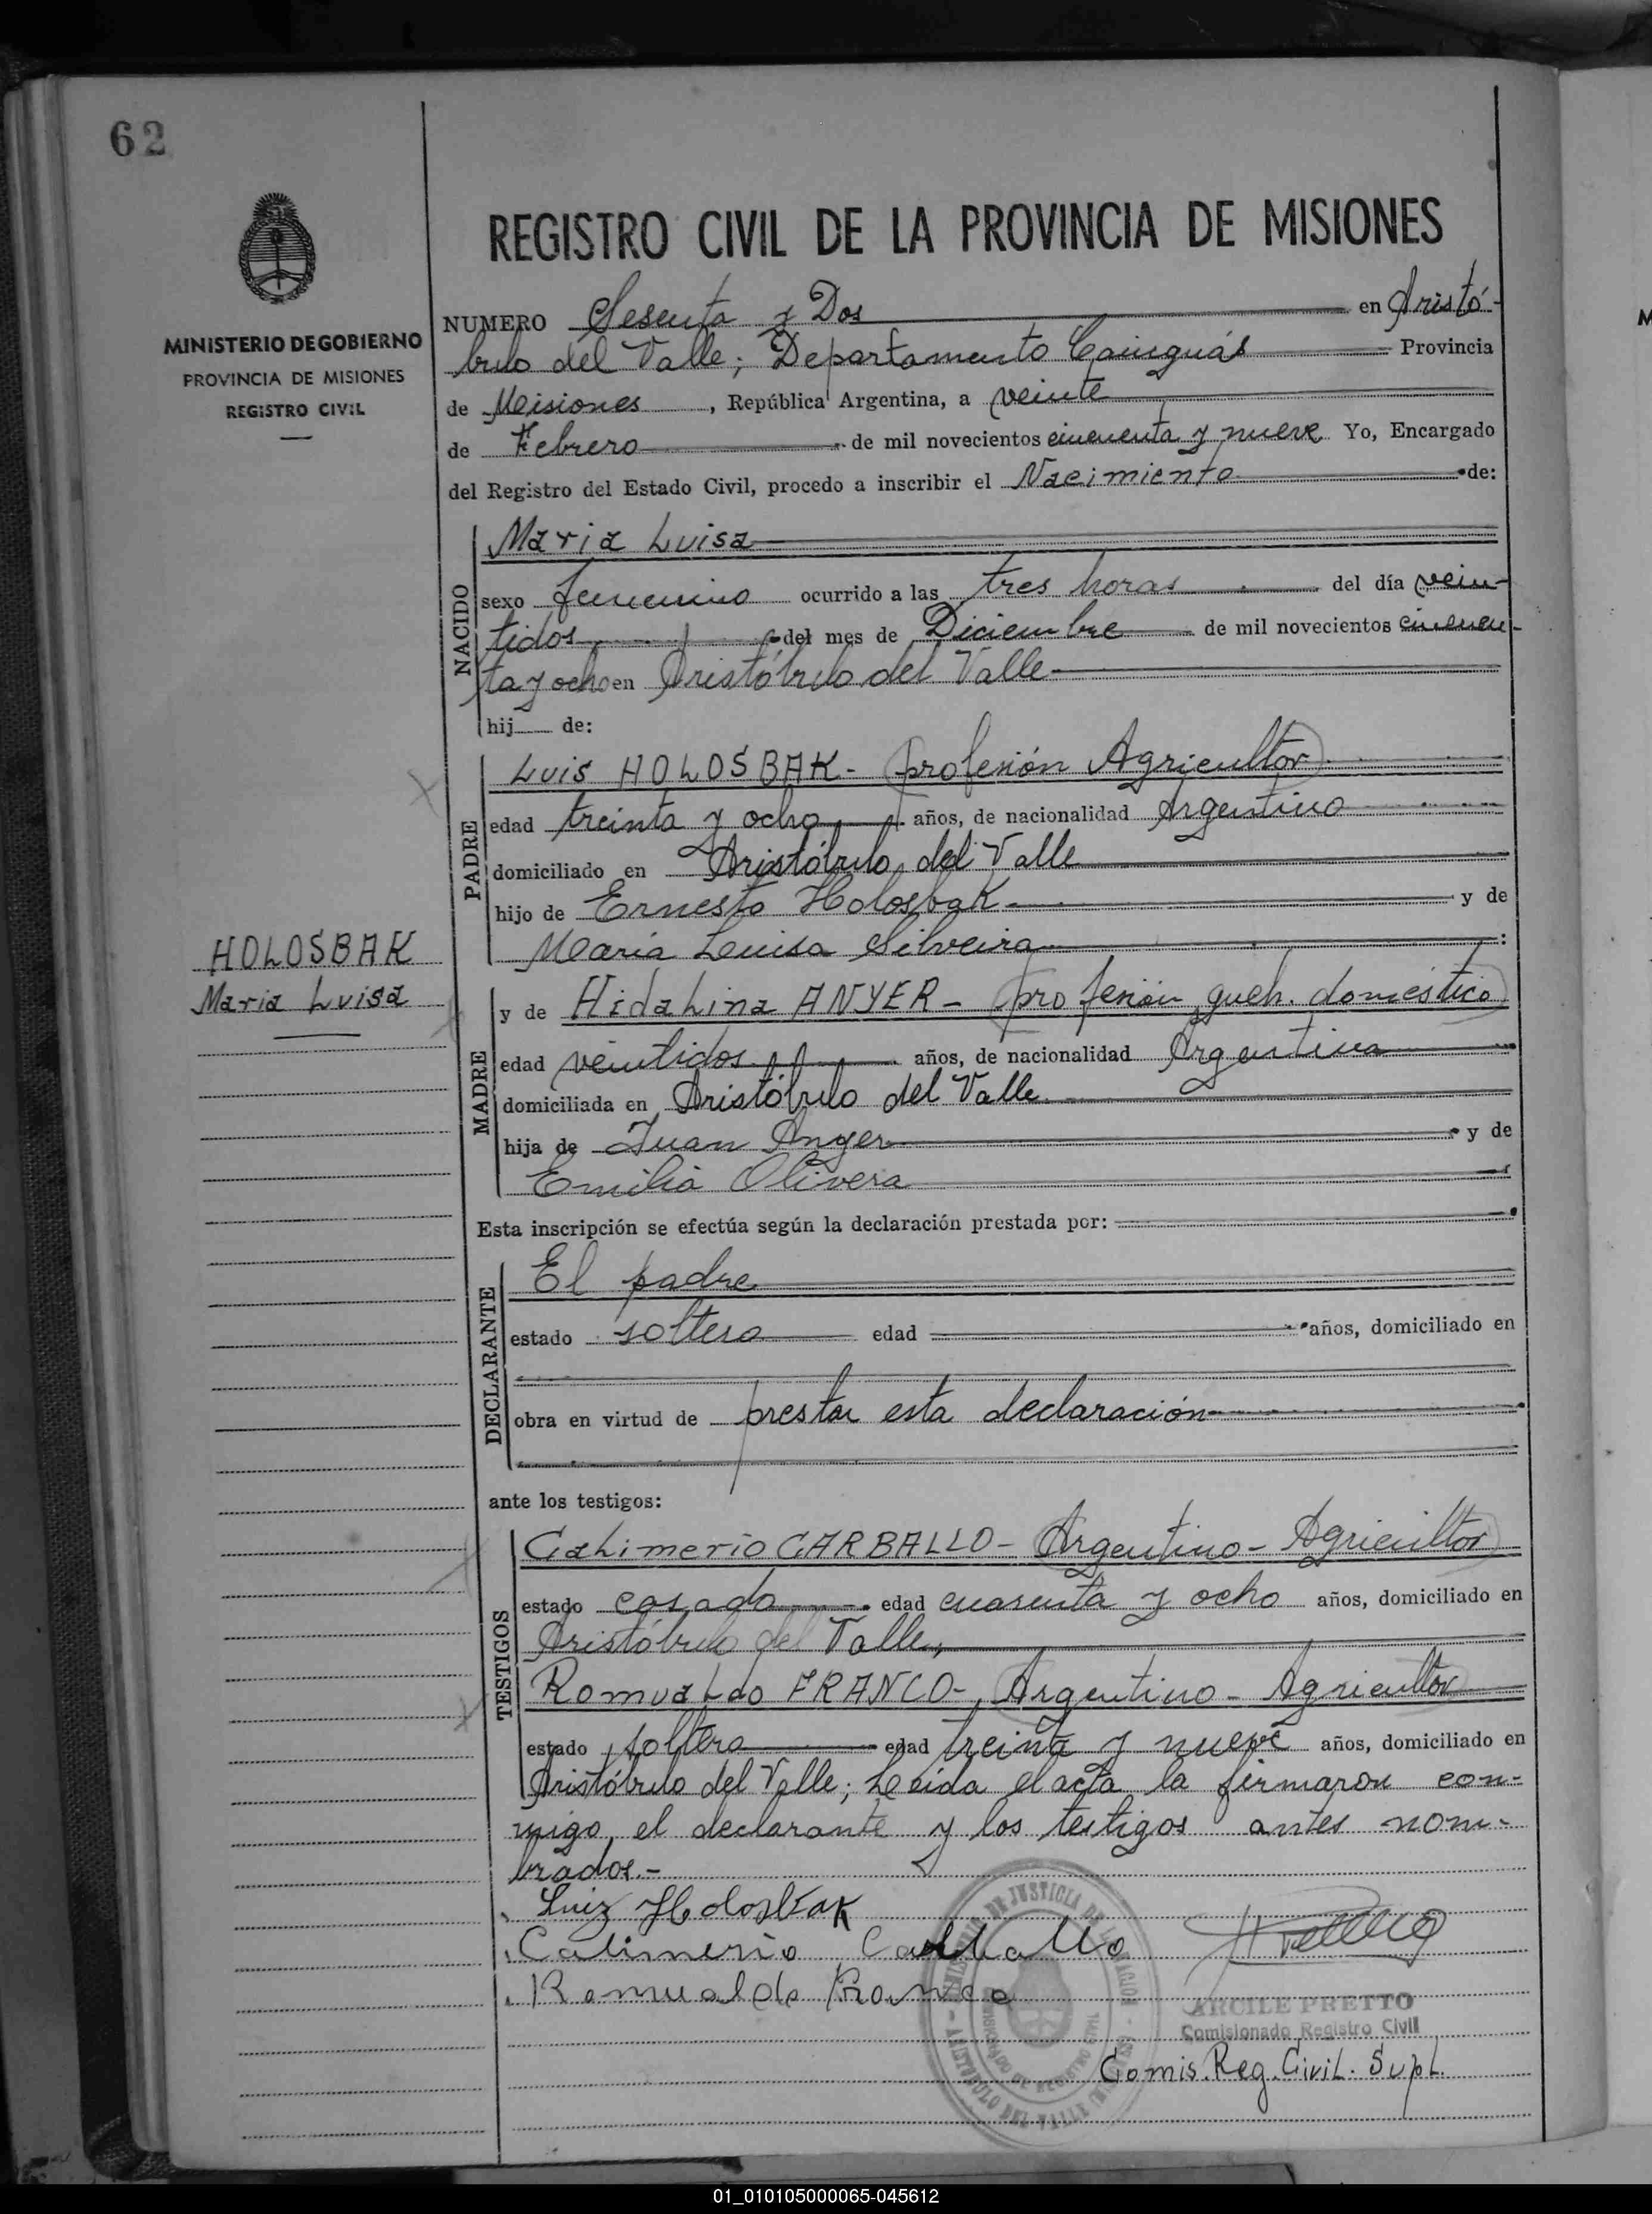 62
MINISTERIO DE GOBIERNO
PROVINCIA DE MISIONES
REGISTRO CIVIL
HOLOSBAK
Maria Luisa
REGISTRO CIVIL DE LA PROVINCIA DE MISIONES
NUMERO Sesenta y Dos en Aristó-
bulo del Valle; Departamento Cainguás Provincia
de Misiones, República Argentina, a veinte
de Febrero de mil novecientos cincuenta y nueve Yo, Encargado
del Registro del Estado Civil, procedo a inscribir el Nacimiento de:
NACIDO
Maria Luisa
sexo femenino ocurrido a las tres horas del día vein-
tidos del mes de Diciembre de mil novecientos cincuen-
ta y ocho en Aristóbulo del Valle
hij de:
PADRE
Luis HOLOSBAK- profesión Agricultor
edad treinta y ocho años, de nacionalidad Argentino
domiciliado en Aristóbulo del Valle
hijo de Ernesto Holosbak y de
Maria Luisa Silveira
MADRE
y de Hidalina ANYER- profesión queh. doméstico
edad veintidos años, de nacionalidad Argentina
domiciliada en Aristóbulo del Valle
hija de Juan Anyer y de
Emilia Olivera
Esta inscripción se efectúa según la declaración prestada por:
DECLARANTE
El padre
estado soltero edad años, domiciliado en
obra en virtud de prestar esta declaración
ante los testigos:
TESTIGOS
Calimerio CARBALLO- Argentino- Agricultor
estado casado edad cuarenta y ocho años, domiciliado en
Aristóbulo del Valle,
Romualdo FRANCO-, Argentino- Agricultor
estado soltero edad treinta y nueve años, domiciliado en
Aristóbulo del Valle; Leída el acta la firmaron con-
migo, el declarante y los testigos antes nom-
brados.-
Luiz Holosbak
Calimerio Carballo
Romualdo Franco
ARCILE PRETTO
Comisionado Registro Civil
Comis. Reg. Civil. Supl.
01_010105000065-045612